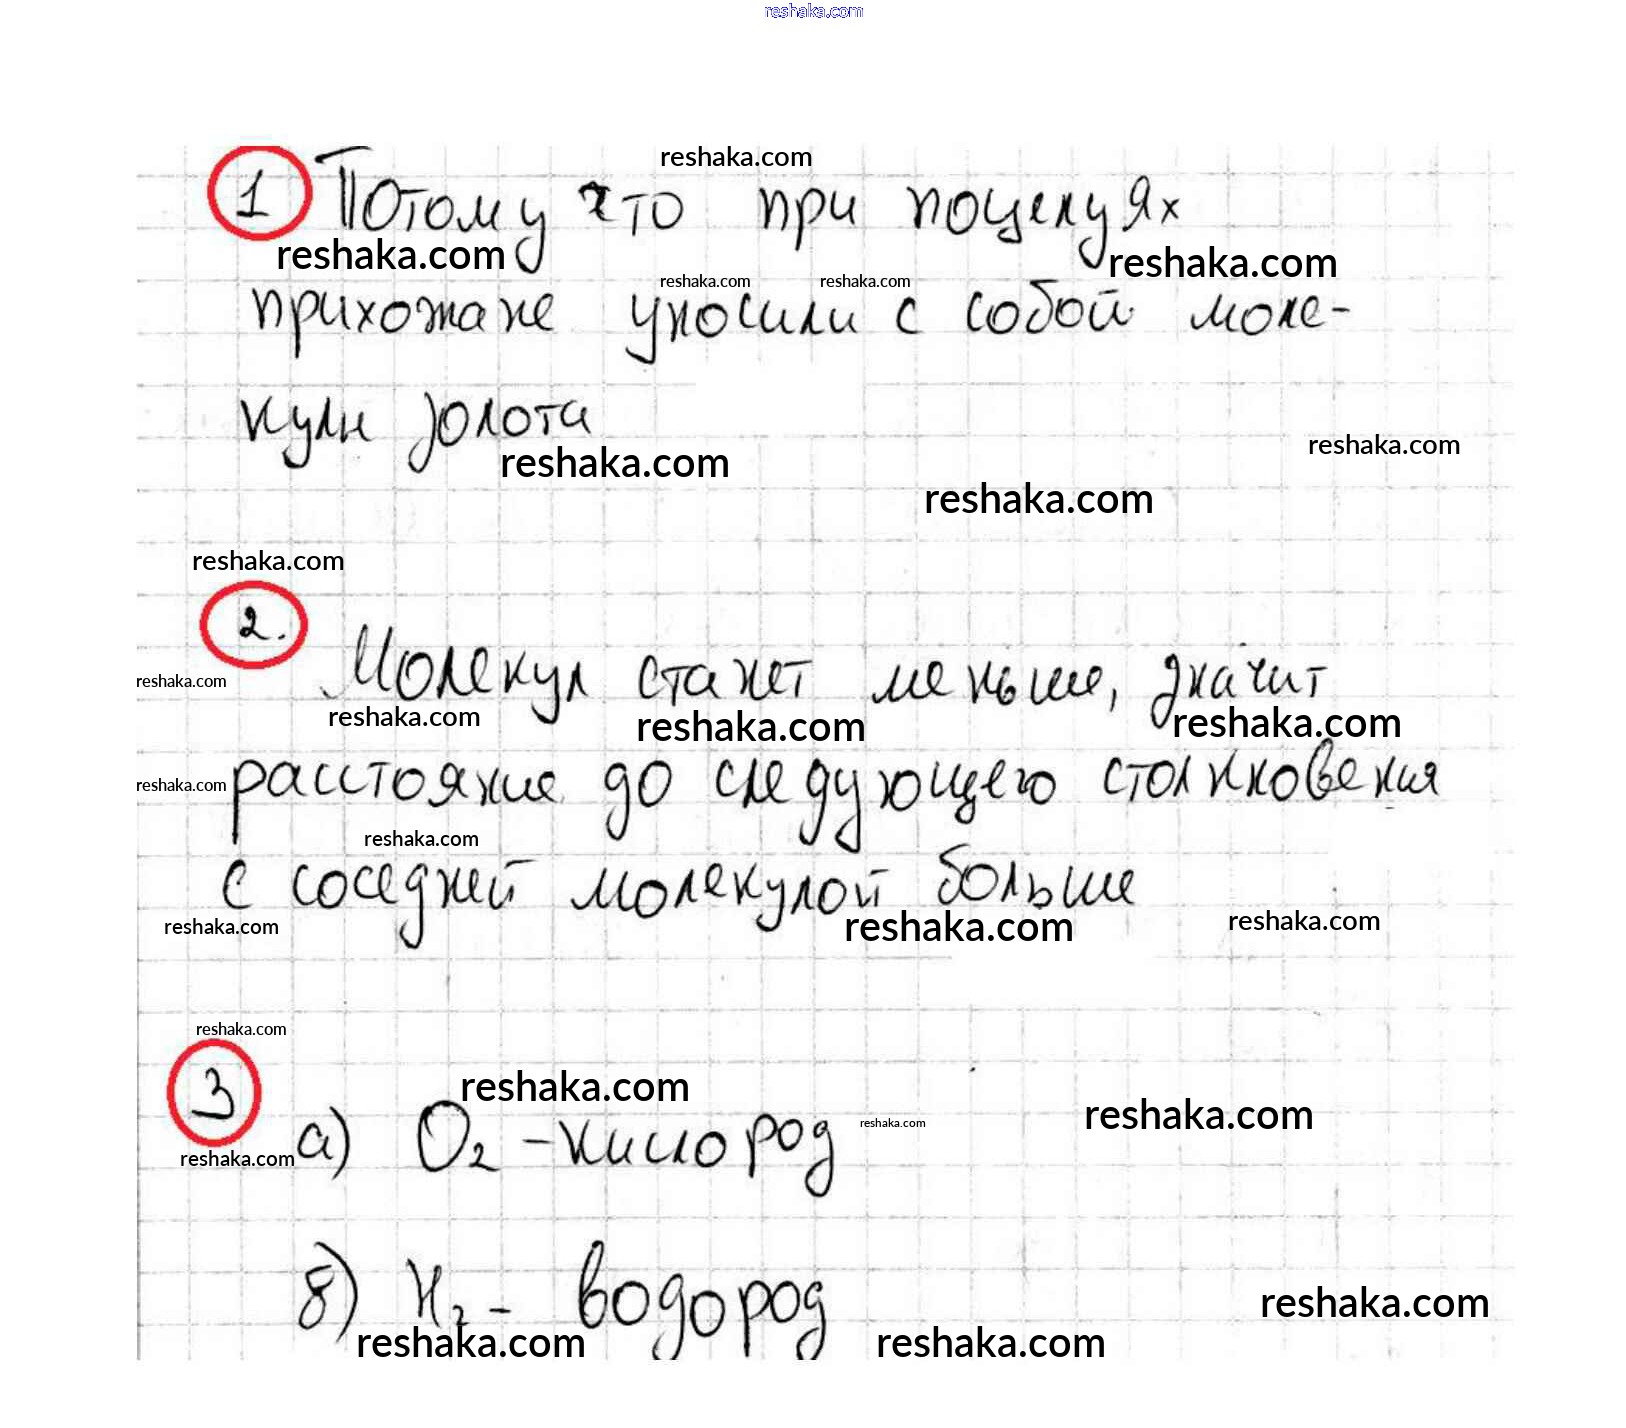 reshaka.com
reshaka.com
1 Потому что при поцелуях
reshaka.com reshaka.com
reshaka.com reshaka.com
прихожане уносили с собой моле-
кулы золота
reshaka.com reshaka.com
reshaka.com
reshaka.com
2. Молекул станет меньше, значит
reshaka.com
reshaka.com reshaka.com reshaka.com
расстояние до следующего столкновения
reshaka.com
reshaka.com
с соседней молекулой больше
reshaka.com reshaka.com reshaka.com
reshaka.com
3
reshaka.com reshaka.com
а) O2 - кислород
reshaka.com
reshaka.com
б) H2 - водород
reshaka.com
reshaka.com reshaka.com